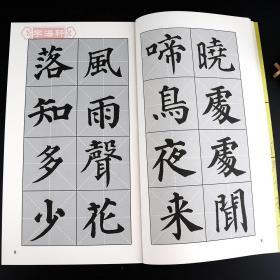 曉處處聞
啼鳥夜来
風雨聲花
落知多少
字海軒